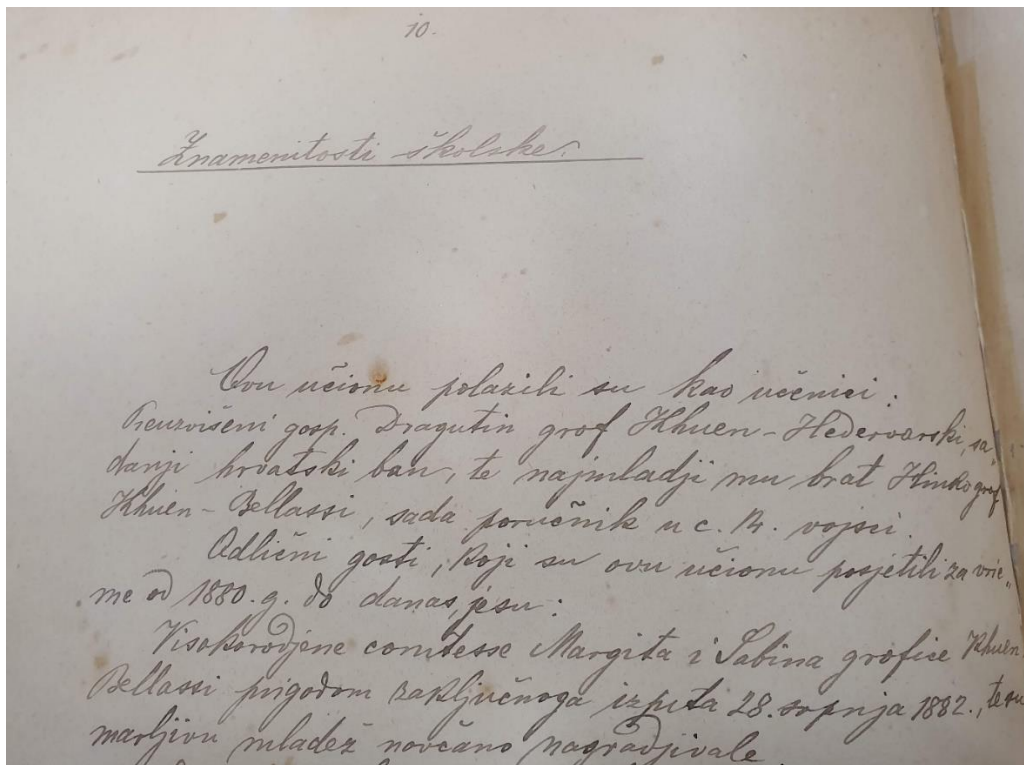 10.
Znamenitosti školske.
Ovu učionu polazili su kao učenici:
Preuzvišeni gosp. Dragutin grof Khuen-Hedervarski, sa„
danji hrvatski ban, te najmladji mu brat Hinko grof
Khuen-Bellassi, sada poručnik u c. kr. vojsci.
Odlični gosti, koji su ovu učionu posjetili za vrie„
me od 1880. g. do danas jesu:
Visokorodjene comtesse Margita i Sabina grofice Khuen
Bellassi prigodom zaključnoga izpita 28. srpnja 1882., te su
marljivu mladež novčano nagradjivale